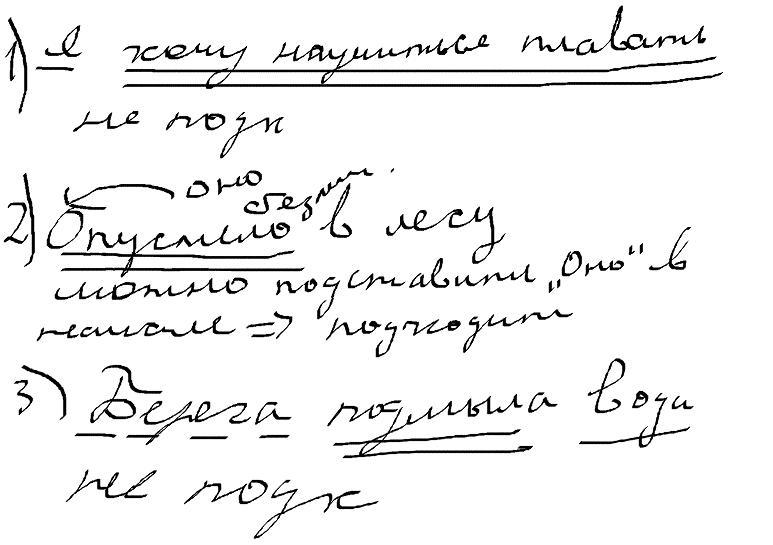 1) Я хочу научиться плавать
не подх
оно
безлич.
2) Опустело в лесу
можно подставить „Оно" в
начале => подходит
3) Берега подмыла вода
не подх